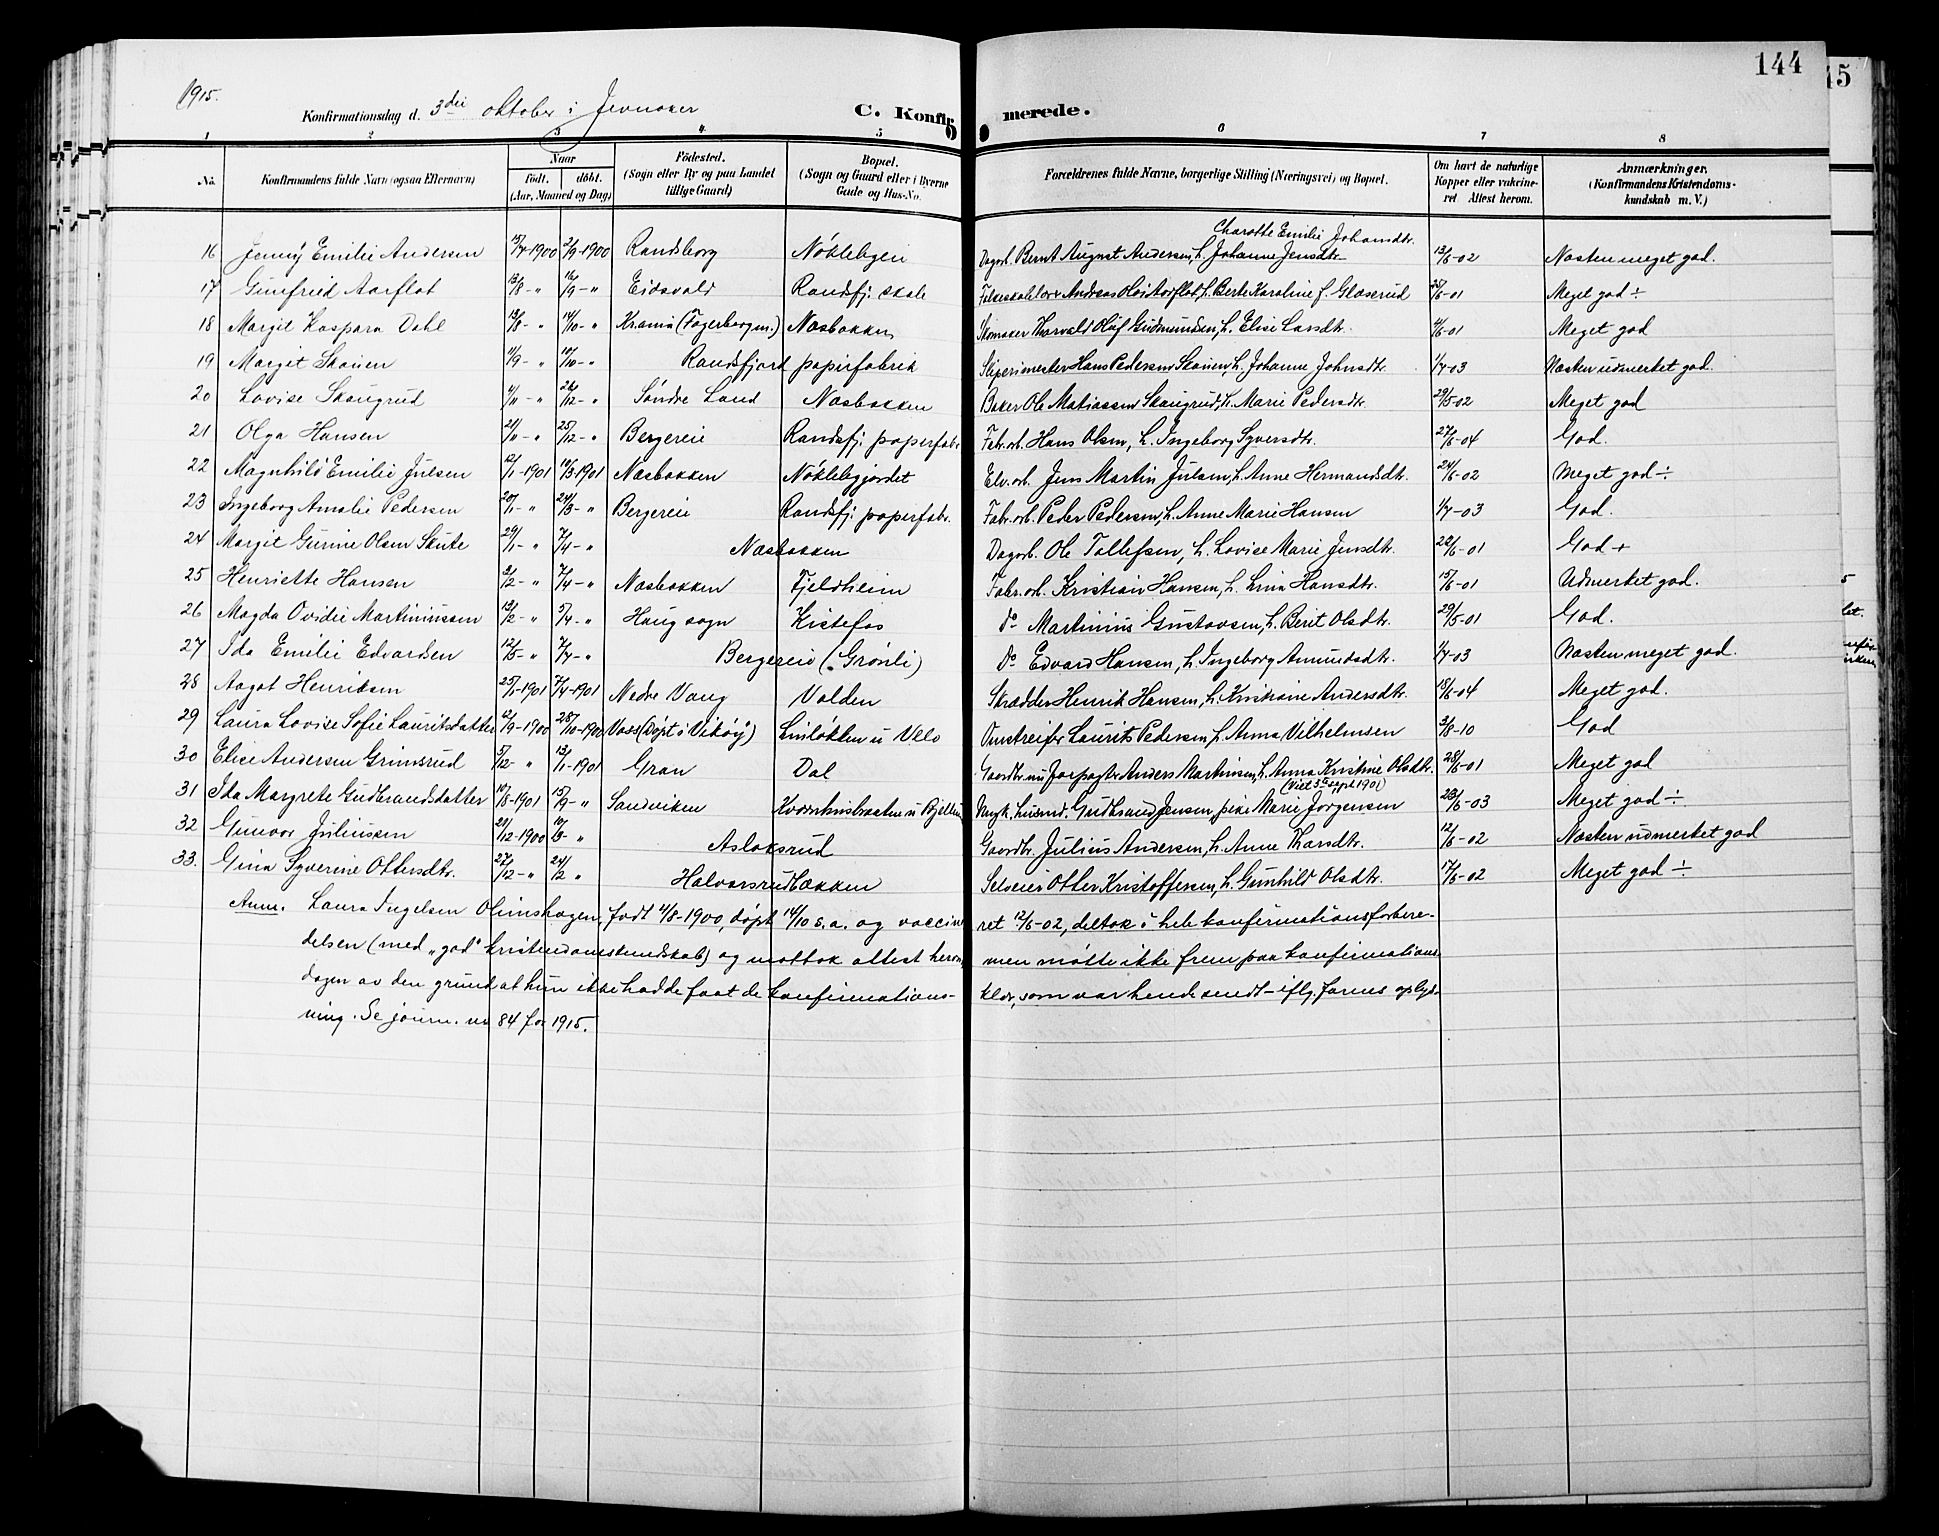 144
15
1915.
Konfirmationsdag d. 3die oktober i Jevnaker
C. Konfirmerede.
1 2 3 4 5 6 7 8
No. Konfirmandens fulde Navn (ogsaa Efternavn) Naar født. døbt. (Aar, Maaned og Dag) Födested. (Sogn eller By og paa Landet tillige Gaard) Bopæl. (Sogn og Gaard eller i Byerne Gade og Hus-No. Forældrenes fulde Navne, borgerlige Stilling (Næringsvei) og Bopæl. Om havt de naturlige Kopper eller vakcineret Attest herom. Anmærkninger. (Konfirmandens Kristendomskundskab m. V.)
Charotte Emilie Johansdtr.
16 Jenny Emilie Andersen 15/4-1900 2/9-1900 Randsborg Nøklebyen Dagarb. Bernt August Andersen, h. Johanne Jensdtr. 13/6-02 Næsten meget god.
17 Gunfrid Aarflot 13/8- " 16/9- " Eidsvold Randsfj. skole Folkeskolelærer Andreas Olai Aarflot, h. Berte Karoline f. Glæserud 25/6-01 Meget god ÷
18 Margit Kaspara Dahl 13/8- " 14/10- " Krania (Fagerborgm.) Næsbakken Skomaker Thorvald Olaf Gudmundsen, h. Elise Larsdtr. 11/6-01 Meget god
19 Margit Skøien 11/9- " 10/10- " Randsfjord papirfabrik Sliperimester Hans Pedersen Skøien, h. Johanne Johnsdtr. 1/7-03 Næsten udmerket god.
20 Lovise Skaugrud 4/11- " 26/12- " Søndre Land Næsbakken Baker Ole Matiassen Skaugrud, h. Marie Pedersdtr. 29/5-02 Meget god
21 Olga Hansen 21/11- " 25/12- " Bergereie Randsfj. papirfabr. Fabr.arb. Hans Olsen, h. Ingeborg Syversdtr. 27/6-04 God.
22 Magnhild Emilie Julsen 12/1-1901 10/3-1901 Næsbakken Nøklebygjordet Elv.arb. Jens Martin Julsen, h. Anne Hermansdtr. 24/6-02 Meget god ÷
23 Ingeborg Amalie Pedersen 20/1- " 24/3- " Bergereie Randsfj. papirfabr. Fabr.arb. Peder Pedersen, h. Anne Marie Hansen 1/7-03 God.
24 Margit Gurine Olsen Skute 29/1- " 7/4- " Næsbakken Dagarb. Ole Tollefsen, h. Lovise Marie Jensdtr. 28/6-01 God +
25 Henriette Hansen 2/2- " 7/4- " Næsbakken Fjeldheim Fabr.arb. Kristian Hansen, h. Lina Hansdtr. 15/6-01 Udmerket god.
26 Magda Ovidie Martiniussen 13/2- " 5/4- " Haug sogn Kistefos do Martinius Gustavsen, h. Berit Olsdtr. 29/5-01 God.
27 Ida Emilie Edvardsen 12/3- " 7/4- " Bergereie (Grønli) do Edvard Hansen, h. Ingeborg Amundsdtr. 1/7-03 Næsten meget god.
28 Aagot Henriksen 25/1-1901 7/4-1901 Nedre Vang Volden Skrædder Henrik Hansen, h. Kristiane Andersdtr. 18/6-04 Meget god.
29 Laura Lovise Sofie Lauritsdatter 12/9-1900 28/10-1900 Voss (Døpt i Vikøy) Linløkken u Velo Omstreifer Laurits Pedersen, h. Anna Vilhelmsen 3/8-10 God
30 Elise Andersen Grimsrud 5/12- " 13/1-1901 Gran Dal Gaardbr. nu Forpagter Anders Martinsen, h. Anna Kristine Olsdtr. 28/6-01 Meget god
(Viet 3die sept 1901)
31 Ida Margrete Gudbrandsdatter 10/8-1901 15/9- " Sandviken Kværnhusbraaten u Bjellum Ungk. husmd. Gudbrand Jensen, pike Marie Jørgensen 23/6-03 Meget god ÷
32 Gunvor Juliussen 21/12-1900 10/3 " Aslaksrud Gaardbr. Julius Andersen, h. Anne Larsdtr. 12/6-02 Næsten udmerket god
33. Gina Syverine Ottersdtr. 27/12- " 24/2 " Halvorsrudbakken Selveier Otter Kristoffersen, h. Gunhild Olsdtr. 17/6-02 Meget god ÷
Anm. Laura Ingelsen Olimshagen, født 4/8-1900, døpt 14/10 s.a. og vaccineret 12/6-02, deltok i hele konfirmationsforbere-
delsen (med „god" kristendomskundskab) og mottok attest herom, men møtte ikke frem paa konfirmations-
dagen av den grund at hun ikke hadde faat de konfirmations-klær, som var hende sendt - iflg. farens oplys-
ning. Se journ. nr 84 for 1915.